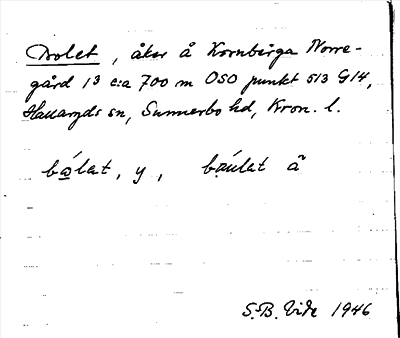 Bolet, åker å Kornbärga Norre-
gård 1³ c:a 700 m OSO punkt 513 G14,
Hallaryds sn, Sunnerbo hd, Kron. l.
bo̲let, y, bœúlat ã
S.-B. Vide 1946